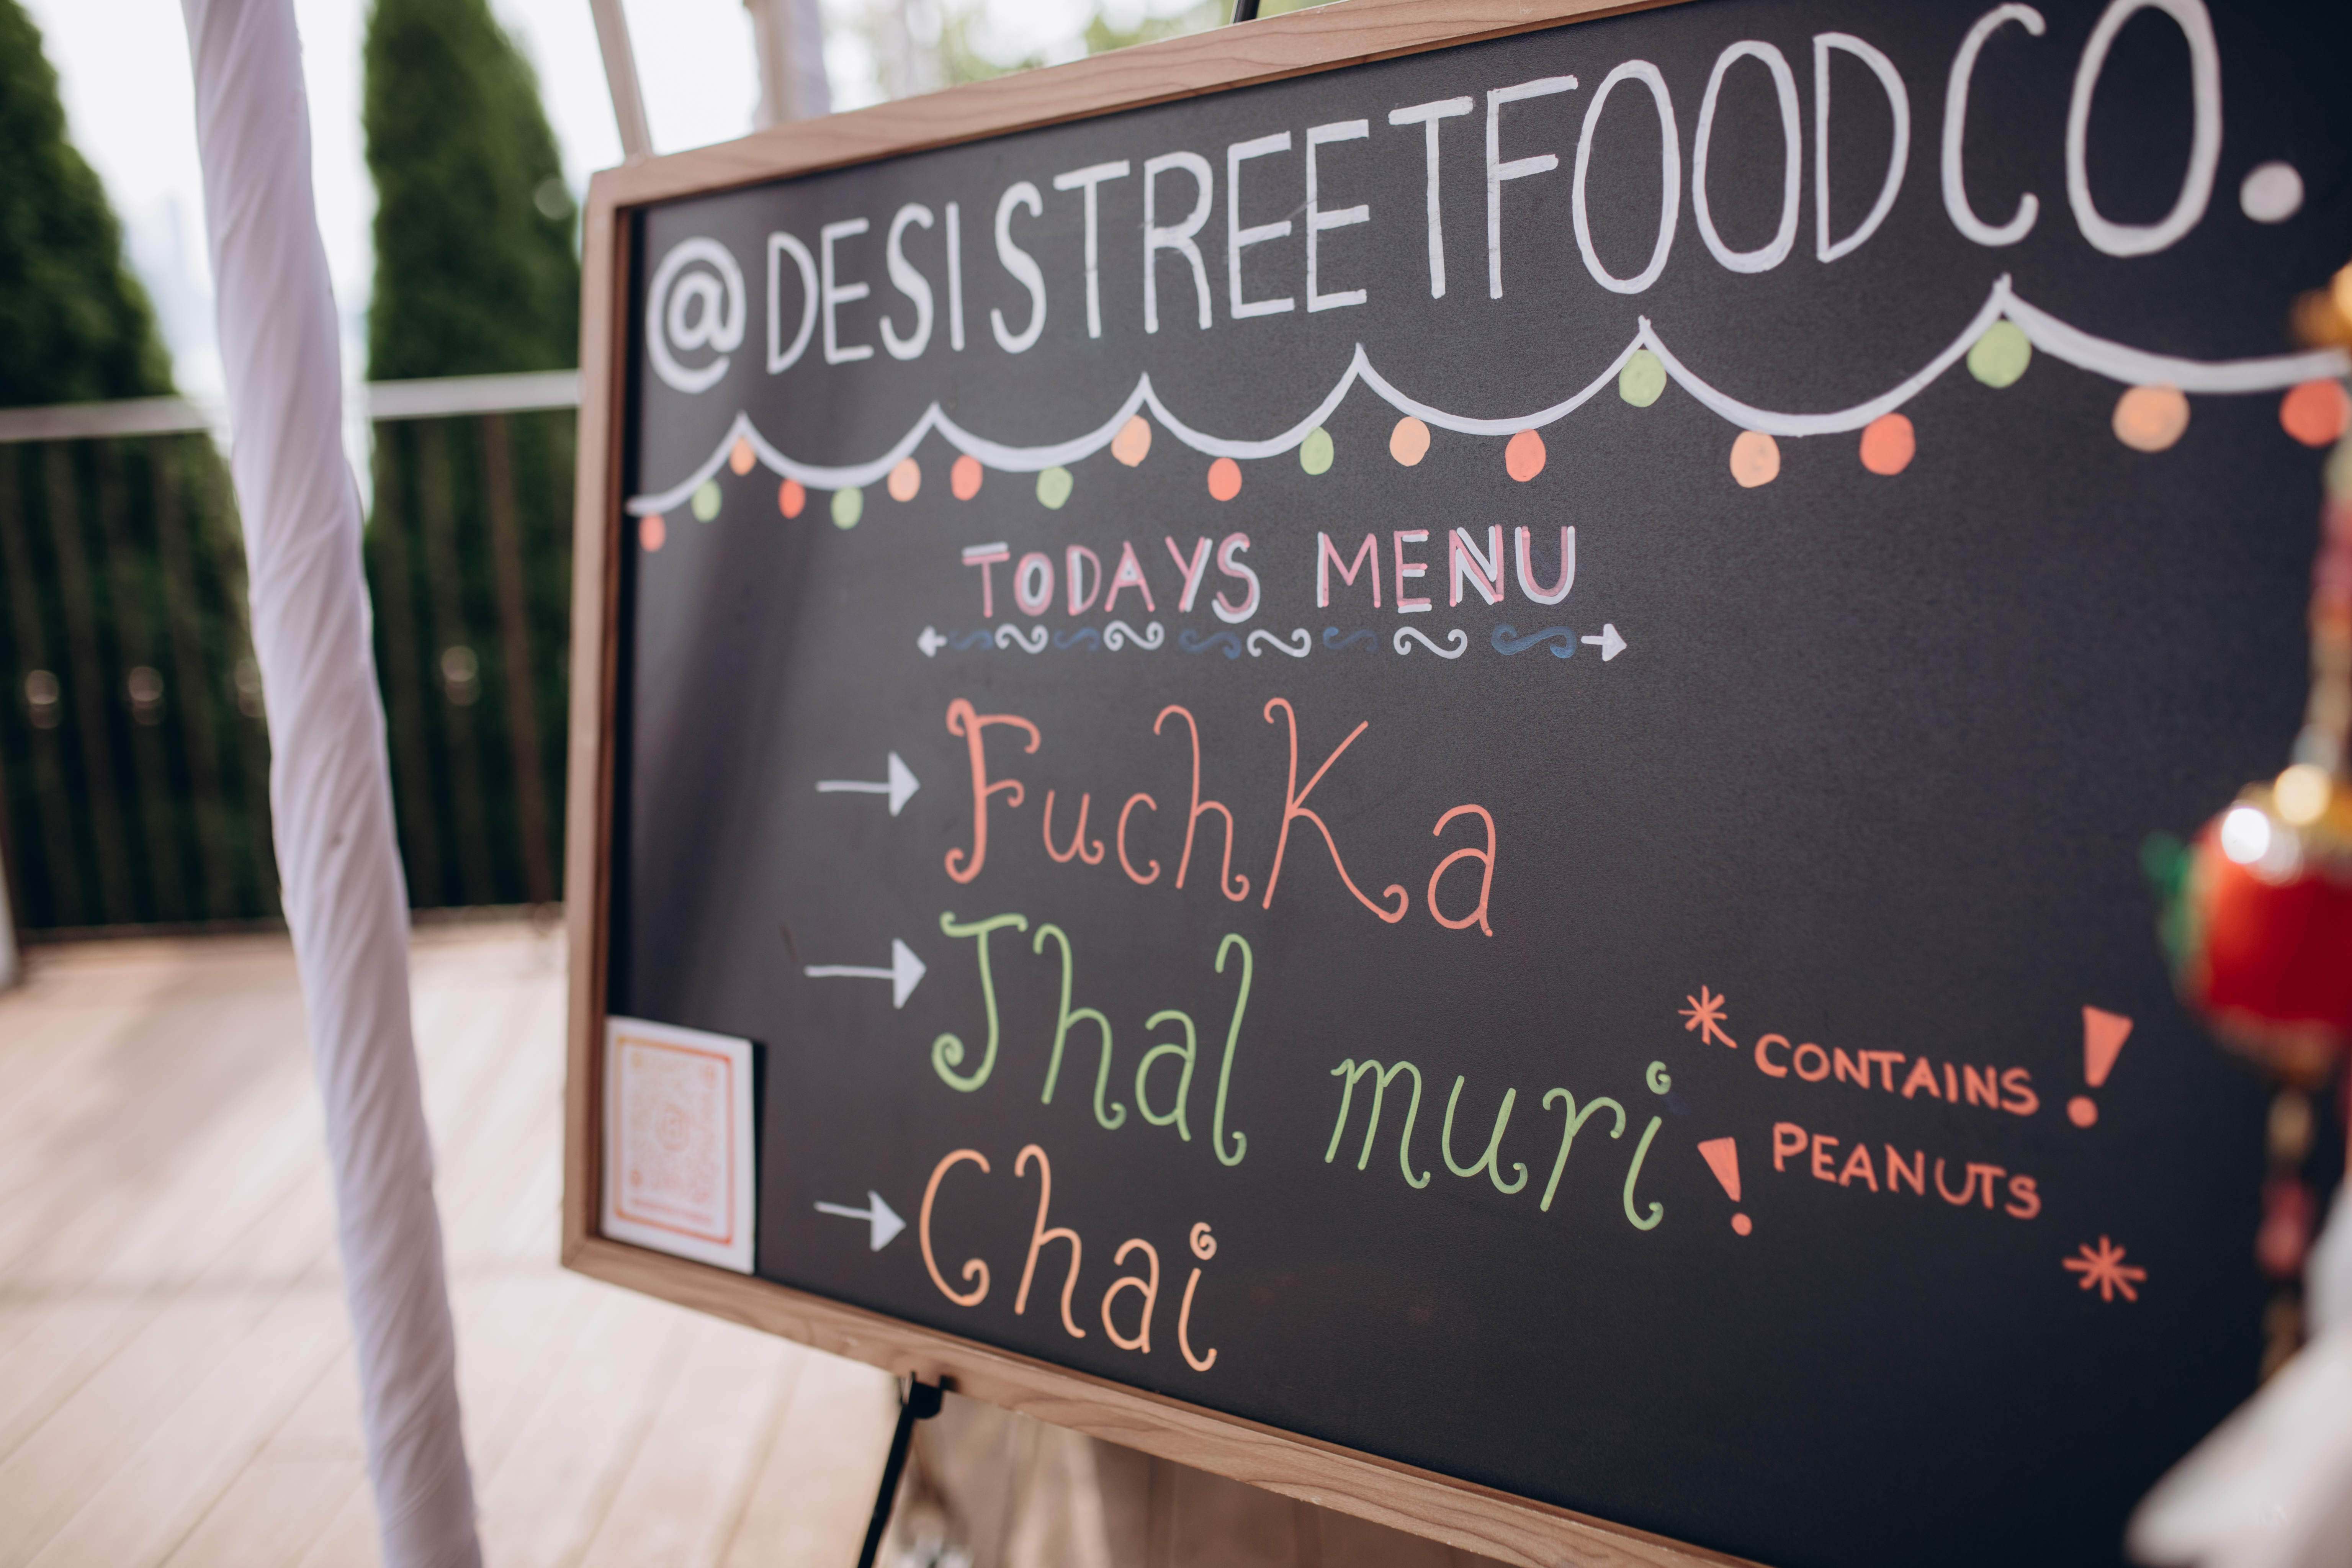 @DESISTREETFOODCO.
TODAYS MENU
→ Fuchka
→ Jhal muri
* CONTAINS !
! PEANUTS *
→ Chai